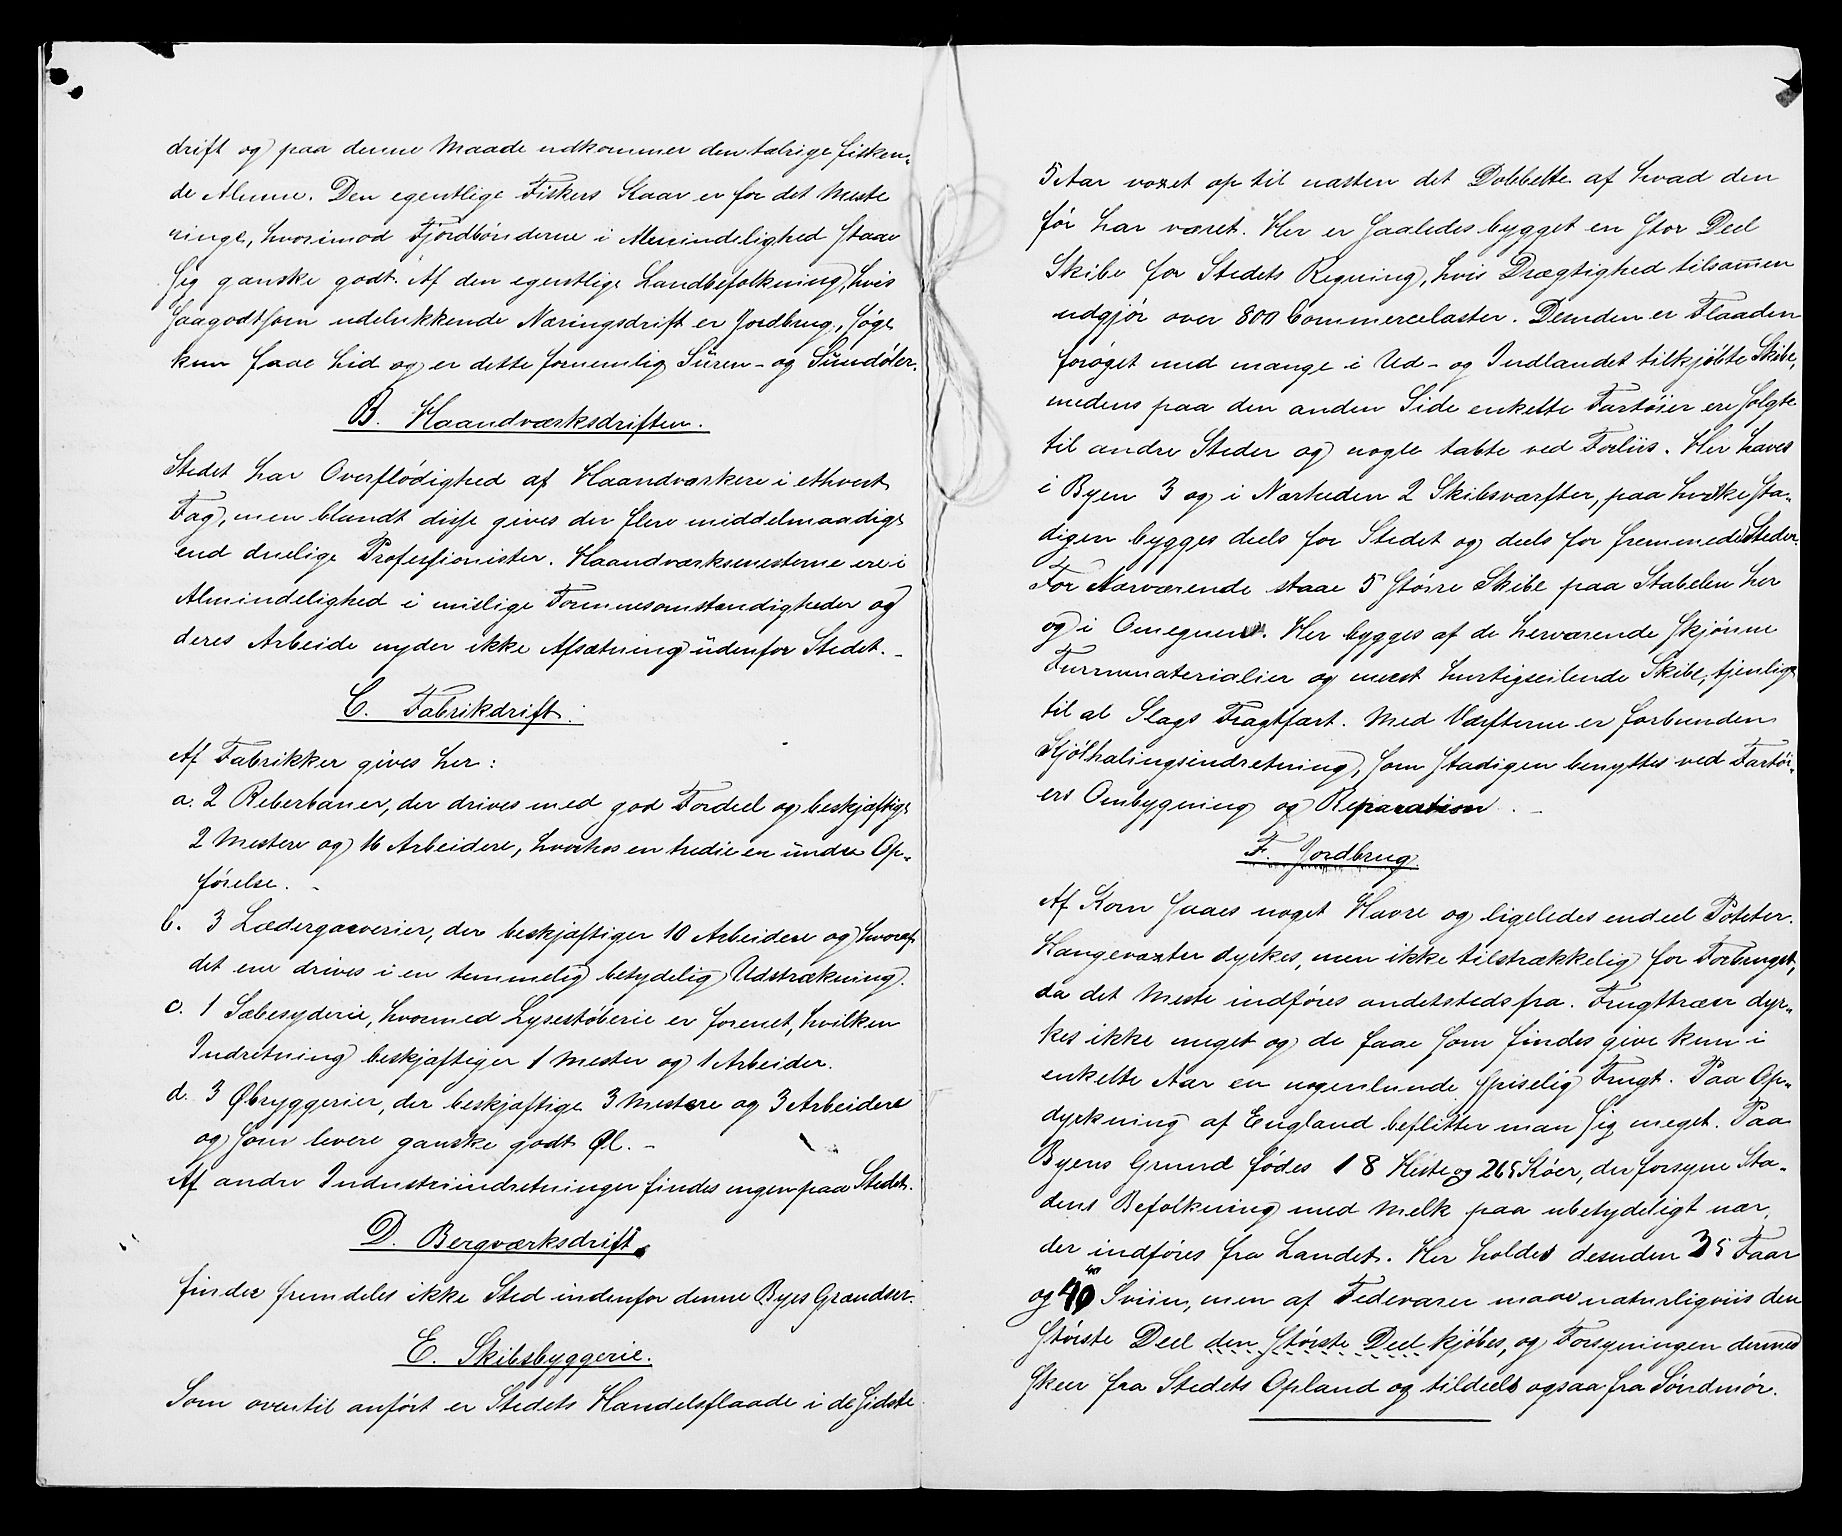 drift og paa denne Maade udkommer den talrige fisken-
de Almue. Den egentlige Fiskers Kaar er for det Meste
ringe, hvorimod Fjordbønderne i Almindelighed staae
sig ganske godt. Af den egentlige Landbefolkning, hvis
saagodtsom udelukkende Næringsdrift er Jordbrug, søge
kun faae hid og er dette fornemlig Suren- og Sundøler.
B. Haandværksdriften.
Stedet har Overflødighed af Haandværkere i ethvert
Fag, men blandt disse gives der flere middelmaadige
end duelige Professionister. Haandværksmesterne ere i
Almindelighed i mislige Formuesomstændigheder og
deres Arbeide nyder ikke Afsætning udenfor Stedet. -
C. Fabrikdrift.
Af Fabrikker gives her:
a. 2 Reberbaner, der drives med god Fordeel og beskjæftige
2 Mestere og 16 Arbeidere, hvorhos en tredie er under Op-
førelse. -
b. 3 Lædergarverier, der beskjæftiger 10 Arbeidere og hvoraf
det ene drives i en temmelig betydelig Udstrækning.
c. 1 Sæbesyderie, hvormed Lysestøberie er forenet, hvilken
Indretning beskjæftiger 1 Mester og 1 Arbeider.
d. 3 Ølbryggerier, der beskjæftige 3 Mestere og 3 Arbeidere
og som levere ganske godt Øl. -
Af andre Industriindretninger findes ingen paa Stedet.
D. Bergværksdrift.
finder fremdeles ikke Sted indenfor denne Byes Grændser.
E. Skibsbyggerie.
Som oventil anført er Stedets Handelsflaade i de sidste
5 Aar voxet op til næsten det Dobbelte af hvad den
før har været. Her er saaledes bygget en stor Deel
Skibe for Stedets Regning, hvis Drægtighed tilsammen
udgjør over 800 Commercelæster. Desuden er Flaaden
forøget med mange i Ud- og Indlandet tilkjøbte Skibe,
medens paa den anden Side enkelte Fartøier ere solgte
til andre Steder og nogle tabte ved Forliis. Her haves
i Byen 3 og i Nærheden 2 Skibsværfter, paa hvilke sta-
digen bygges deels for Stedet og deels for fremmede Steder.
For Nærværende staae 5 større Skibe paa Stabelen her
og i Omegnen. Her bygges af de herværende skjønne
Furrumaterialier og meest hurtigseilende Skibe, tjenlige
til al Slags Fragtfart. Med Værfterne er forbunden
Kjølhalingsindretning, som stadigen benyttes ved Fartøi-
ers Ombygning og Reparation. -
F. Jordbrug.
Af Korn saaes noget Havre og ligeledes endeel Poteter.
Haugevæxter dyrkes, men ikke tilstrækkelig for Forbruget,
da det Meste indføres andetstedsfra. Frugttræer dyr-
kes ikke meget og de faae som findes give kun i
enkelte Aar en nogenlunde spiselig Frugt. Paa Op-
dyrkning af England beflitter man sig meget. Paa
Byens Grund fødes 18 Heste og 265 Køer, der forsyne Sta-
dens Befolkning med Melk paa ubetydeligt nær,
der indføres fra Landet. Her holdes desuden 35 Faar
og 40 Sviin, men af Fedevarer maae naturligviis den
største Deel den største Deel kjøbes, og Forsyningen dermed
skeer fra Stedets Opland og tildeels ogsaa fra Søndmør.